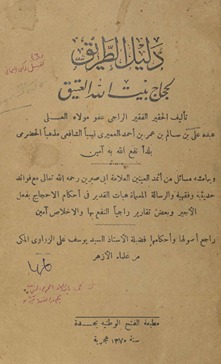 دليل الطريق
لحجاج بيت الله العتيق
تأليف الحقير الفقير الراجي عفو مولاه العلي
عبده علي بن سالم بن عمر بن أحمد العميري نسباً الشافعي مذهباً الحضرمي
بلداً نفع الله به آمين
وبهامشه مسائل من أئمة العلامة رحمه الله تعالى مع فوائد
حديثية وفقهية والرسالة المسماة هبات القدير في أحكام الاحجاج بفعل
الأجير وبعض تقارير راجياً النفع بها والاخلاص آمين
راجع أصولها وأحكامها فضيلة الأستاذ السيد يوسف علي الزواوي المكي
من علماء الأزهر
مطبعة الفتح الوطنية بجدة
سنة ١٣٧٠ هجرية